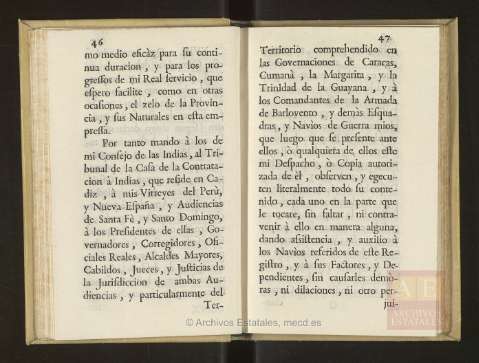 46
mo medio eficàz para su conti-
nua duracion, y para los pro-
gressos de mi Real servicio, que
espero facilite, como en otras
ocasiones, el zelo de la Provin-
cia, y sus Naturales en esta em-
pressa.
Por tanto mando à los de
mi Consejo de las Indias, al Tri-
bunal de la Casa de la Contrata-
cion à Indias, que reside en Ca-
diz, à mis Virreyes del Perù,
y Nueva-España, y Audiencias
de Santa Fè, y Santo Domingo,
à los Presidentes de ellas, Go-
vernadores, Corregidores, Ofi-
ciales Reales, Alcaldes Mayores,
Cabildos, Jueces, y Justicias de
la Jurisdiccion de ambas Au-
diencias, y particularmente del
Ter-
47
Territorio comprehendido en
las Governaciones de Caracas,
Cumanà, la Margarita, y la
Trinidad de la Guayana, y à
los Comandantes de la Armada
de Barlovento, y demàs Esqua-
dras, y Navios de Guerra mios,
que luego que se presente ante
ellos, ò qualquiera de ellos este
mi Despacho, ò Copia autori-
zada de èl, observen, y egecu-
ten literalmente todo su conte-
nido, cada uno en la parte que
le tocare, sin faltar, ni contra-
venir à ello en manera alguna,
dando assistencia, y auxilio à
los Navios referidos de este Re-
gistro, y à sus Factores, y De-
pendientes, sin causarles demo-
ras, ni dilaciones, ni otro per-
jui-
AE
ARCHIVOS
ESTATALES
© Archivos Estatales, mecd.es